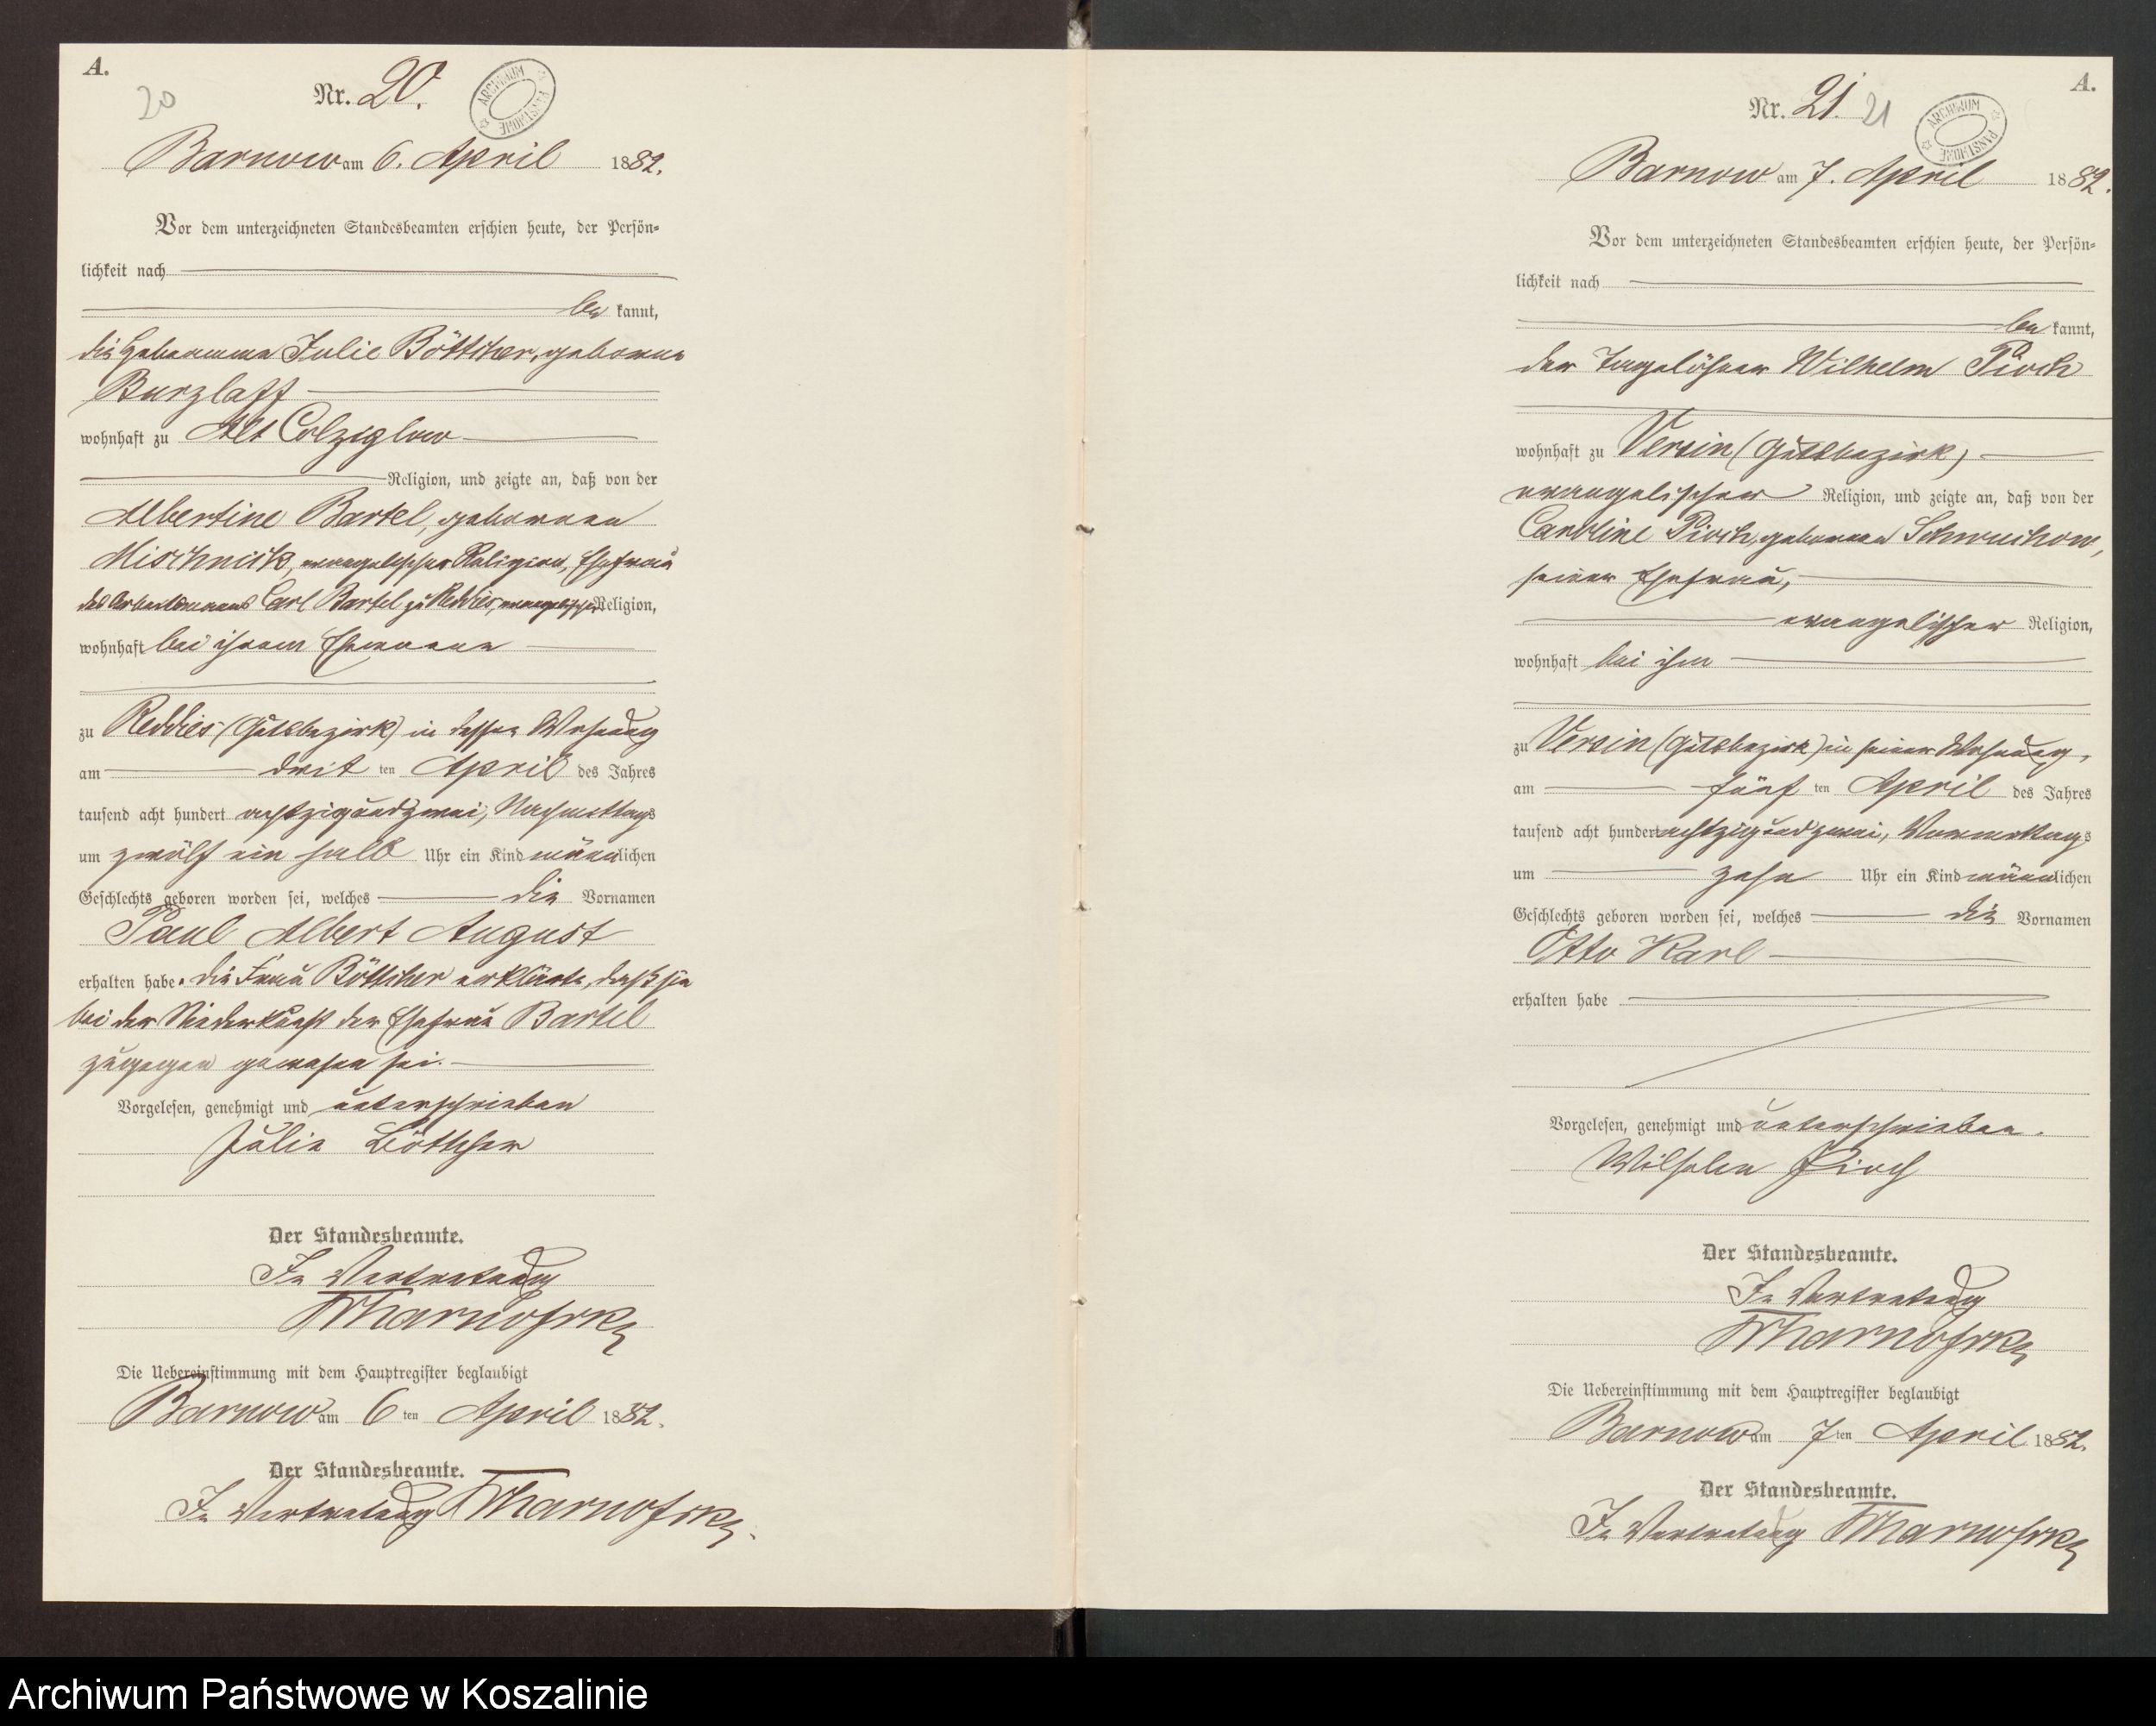 A.
20
Nr. 20.
ARCHIWUM PAŃSTWOWE
Barnow am 6. April 1882.
Vor dem unterzeichneten Standesbeamten erschien heute, der Persön-
lichkeit nach
be kannt,
die Hebamme Julie Böttcher, geborene
Burzlaff
wohnhaft zu Alt Colziglow
Religion, und zeigte an, daß von der
Albertine Bartel, geborenen
Mischnick, evangelischer Religion, Ehefrau
des Arbeitsmanns Carl Bartel zu Reddies, evangelischer Religion,
wohnhaft bei ihrem Ehemanne
zu Reddies (Gutsbezirk) in dessen Wohnung
am drit ten April des Jahres
tausend acht hundert achtzig und zwei, Nachmittags
um zwölf ein halb Uhr ein Kind männlichen
Geschlechts geboren worden sei, welches die Vornamen
Paul Albert August
erhalten habe. Die Frau Böttcher erklärte, daß sie
bei der Niederkunft der Ehefrau Bartel
zugegen gewesen sei.
Vorgelesen, genehmigt und unterschrieben
Julie Böttcher
Der Standesbeamte.
In Vertretung
Die Uebereinstimmung mit dem Hauptregister beglaubigt
Barnow am 6 ten April 1882.
Der Standesbeamte.
In Vertretung
A.
Nr. 21. 21
ARCHIWUM PAŃSTWOWE
Barnow am 7. April 1882.
Vor dem unterzeichneten Standesbeamten erschien heute, der Persön-
lichkeit nach
be kannt,
der Tagelöhner Wilhelm Pioch
wohnhaft zu Versin (Gutsbezirk)
evangelischer Religion, und zeigte an, daß von der
Caroline Pioch, geborenen Schwuchow,
seiner Ehefrau,
evangelischer Religion,
wohnhaft bei ihm
zu Versin (Gutsbezirk) in seiner Wohnung,
am fünf ten April des Jahres
tausend acht hundert achtzig und zwei, Vormittags
um zehn Uhr ein Kind männlichen
Geschlechts geboren worden sei, welches die Vornamen
Otto Karl
erhalten habe
Vorgelesen, genehmigt und unterschrieben.
Wilhelm Pioch
Der Standesbeamte.
In Vertretung
Die Uebereinstimmung mit dem Hauptregister beglaubigt
Barnow am 7 ten April 1882.
Der Standesbeamte.
In Vertretung
Archiwum Państwowe w Koszalinie